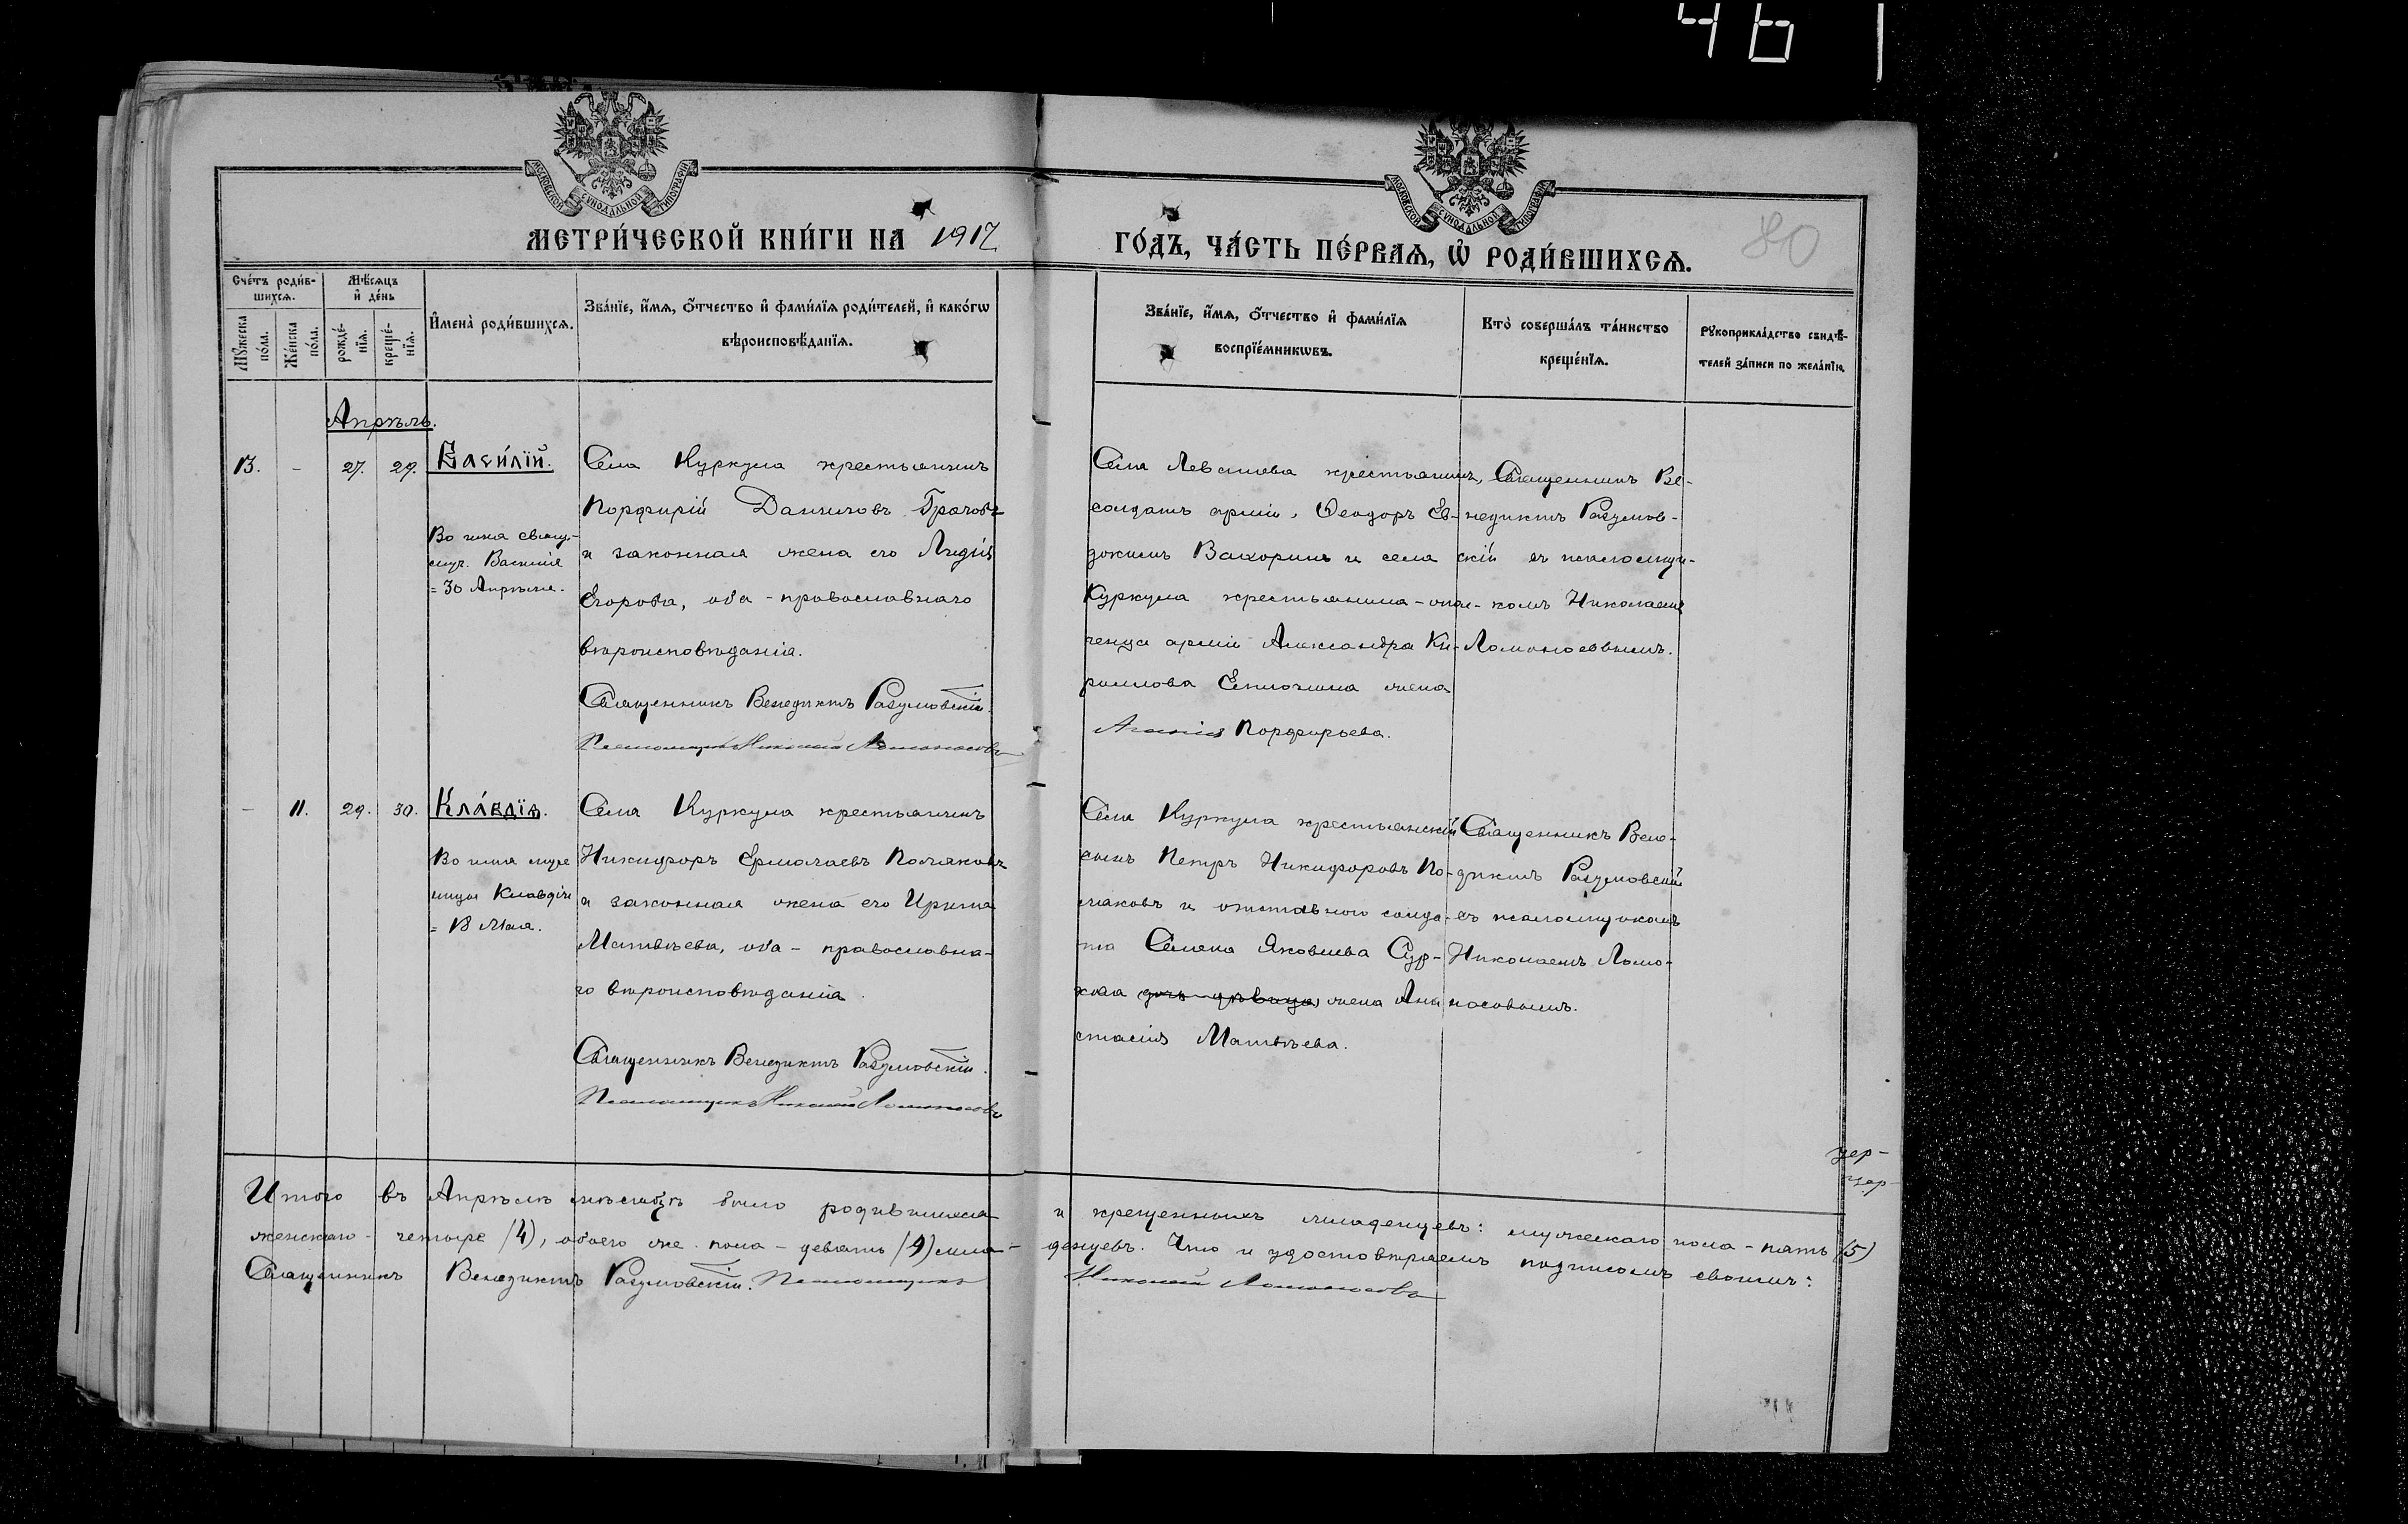 46
МОСКОВСКОЙ СѴНОДАЛЬНОЙ ТИПОГРАФІИ
МОСКОВСКОЙ СѴНОДАЛЬНОЙ ТИПОГРАФІИ
МЕТРИ́ЧЕСКОЙ КНИ́ГИ НА 1917
ГО́ДЪ, ЧА́СТЬ ПЕ́РВАѦ, Ѡ РОДИ́ВШИХСѦ.
80
Сче́тъ роди́в-
шихсѧ.
Мꙋ́жеска
по́ла.
Же́нска
по́ла.
Мѣ́сѧцъ
и҆ де́нь
рожде́-
нїѧ.
креще́-
нїѧ.
И҆мена̀ роди́вшихсѧ.
Зва́нїе, и҆́мѧ, ѻ҆́тчество и҆ фами́лїѧ роди́телей, и҆ како́гѡ
вѣроисповѣ́данїѧ.
Зва́нїе, и҆́мѧ, ѻ҆́тчество и҆ фами́лїѧ
воспрїе́мникѡвъ.
Кто̀ соверша́лъ та́инство
креще́нїѧ.
Рꙋкоприкла́дство свидѣ́-
телей за́писи по жела́нїю.
Апрѣль.
13. - 27. 29. Васи́лїй.
Во имя свящ.-
муч. Василія
= 30 Апрѣля.
Села Куркула крестьянинъ
Порфирій Даниловъ Грачовъ
и законная жена его Лидія
Егорова, оба - православнаго
вѣроисповѣданія.
Священникъ Венедиктъ Разумовскій.
Псаломщикъ Николай Ломоносовъ
Села Левашева крестьянинъ,
солдатъ арміи, Ѳеодоръ Ев-
докимъ Вахоринъ и села
Куркула крестьянина-опол-
ченца арміи Александра Ки-
риллова жена
Порфирьева.
Священникъ Ве-
недиктъ Разумов-
скій съ псаломщи-
комъ Николаемъ
Ломоносовымъ.
- 11. 29. 30. Кла́вдїѧ.
Во имя муче
ницы Клавдіи
= 18 Мая.
Села Куркула крестьянинъ
Никифоръ Ермолаевъ Поляковъ
и законная жена его Ирина
Матвѣева, оба - православна-
го вѣроисповѣданія.
Священникъ Венедиктъ Разумовскій.
Псаломщикъ Николай Ломоносовъ
Села Куркула крестьянскій
сынъ Петръ Никифоровъ По-
ляковъ и отставного солда-
та Семена Яковлева Сур-
кова дочь-дѣвица жена Ана
стасія Матвѣева.
Священникъ Вене-
диктъ Разумовскій
съ псаломщикомъ
Николаемъ Ломо-
носовымъ.
Итого въ Апрѣлѣ мѣсяцѣ было родившихся и крещенныхъ младенцевъ: мужескаго пола - пять (5)
женскаго - четыре (4), обоего же пола - девять (9) мла- денцевъ. Что и удостовѣряемъ подписомъ своимъ:
Священникъ Венедиктъ Разумовскій. Псаломщикъ Николай Ломоносовъ